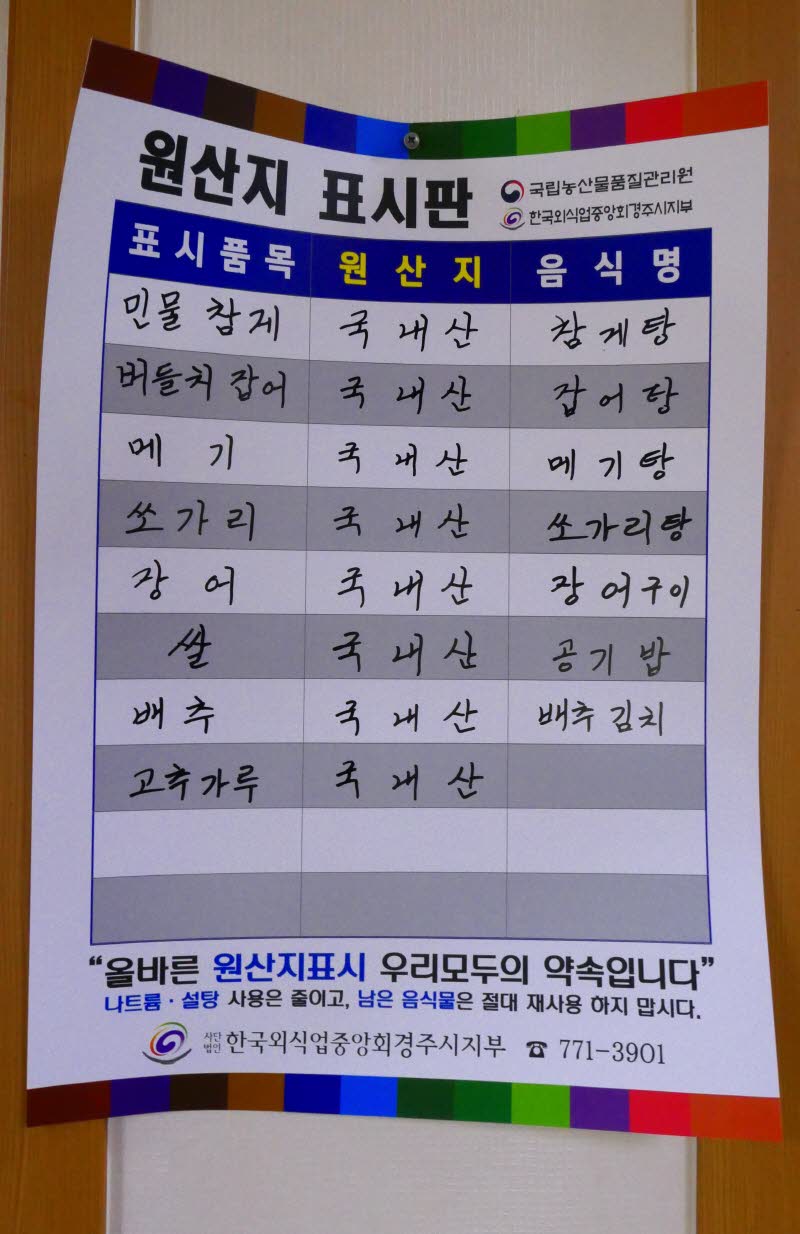 원산지 표시판
국립농산물품질관리원
한국외식업중앙회경주시지부
표시품목 원산지 음식명
민물 참게 국내산 참게탕
버들치 잡어 국내산 잡어탕
메기 국내산 메기탕
쏘가리 국내산 쏘가리탕
장어 국내산 장어구이
쌀 국내산 공기밥
배추 국내산 배추김치
고추가루 국내산
“올바른 원산지표시 우리모두의 약속입니다”
나트륨·설탕 사용은 줄이고, 남은 음식물은 절대 재사용 하지 맙시다.
사단법인 한국외식업중앙회경주시지부 ☎ 771-3901